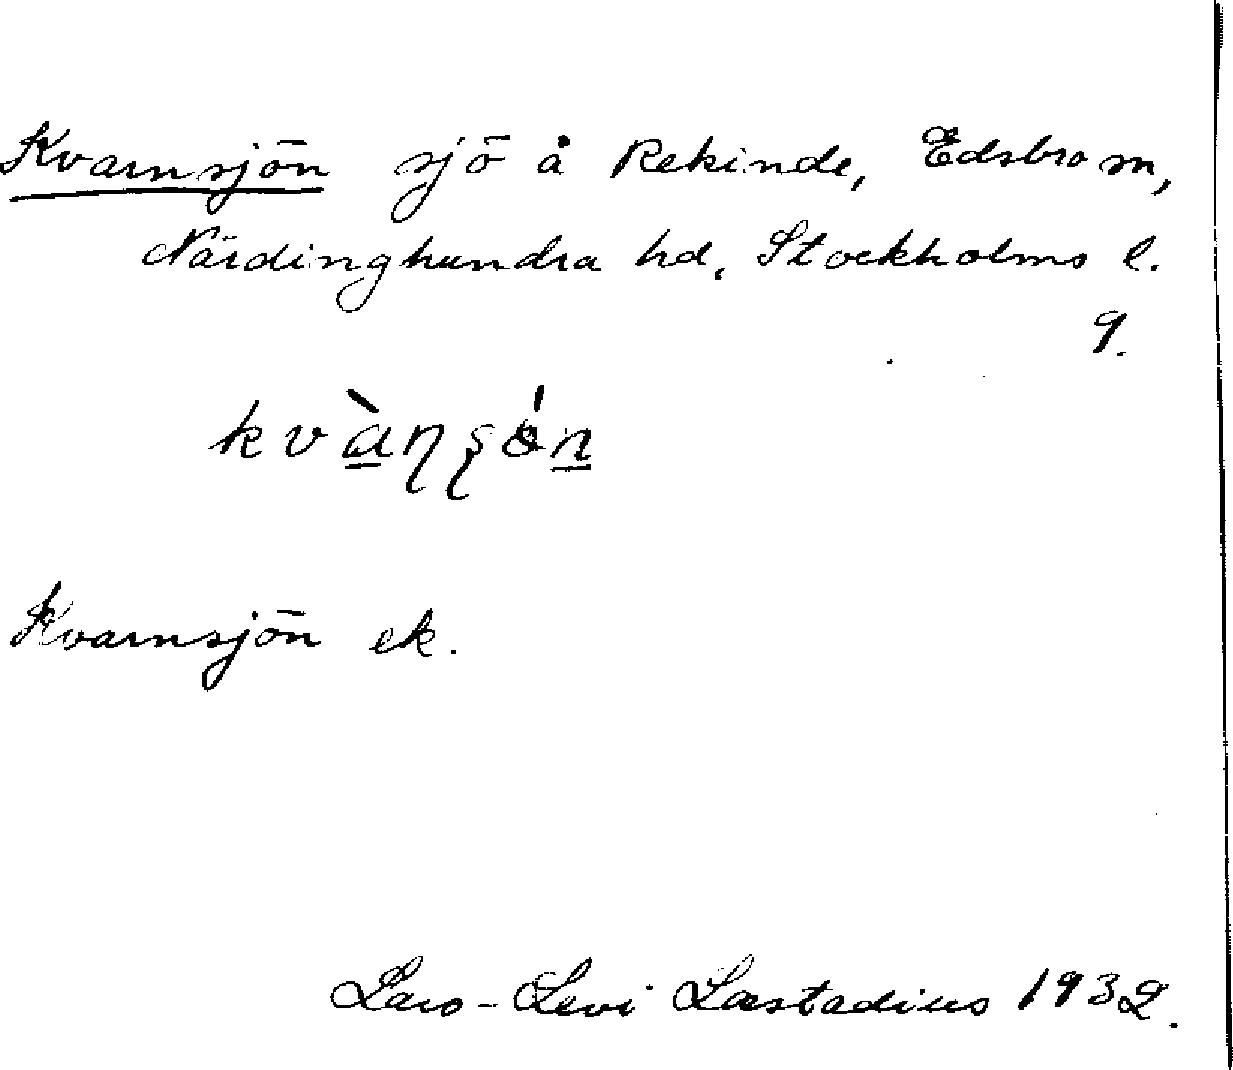 Kvarnsjön sjö å Rekinde, Edsbro sn,
Närdinghundra hd, Stockholms l.
9.
kvàṇʂón
Kvarnsjön ek.
Lars-Levi Læstadius 1932.